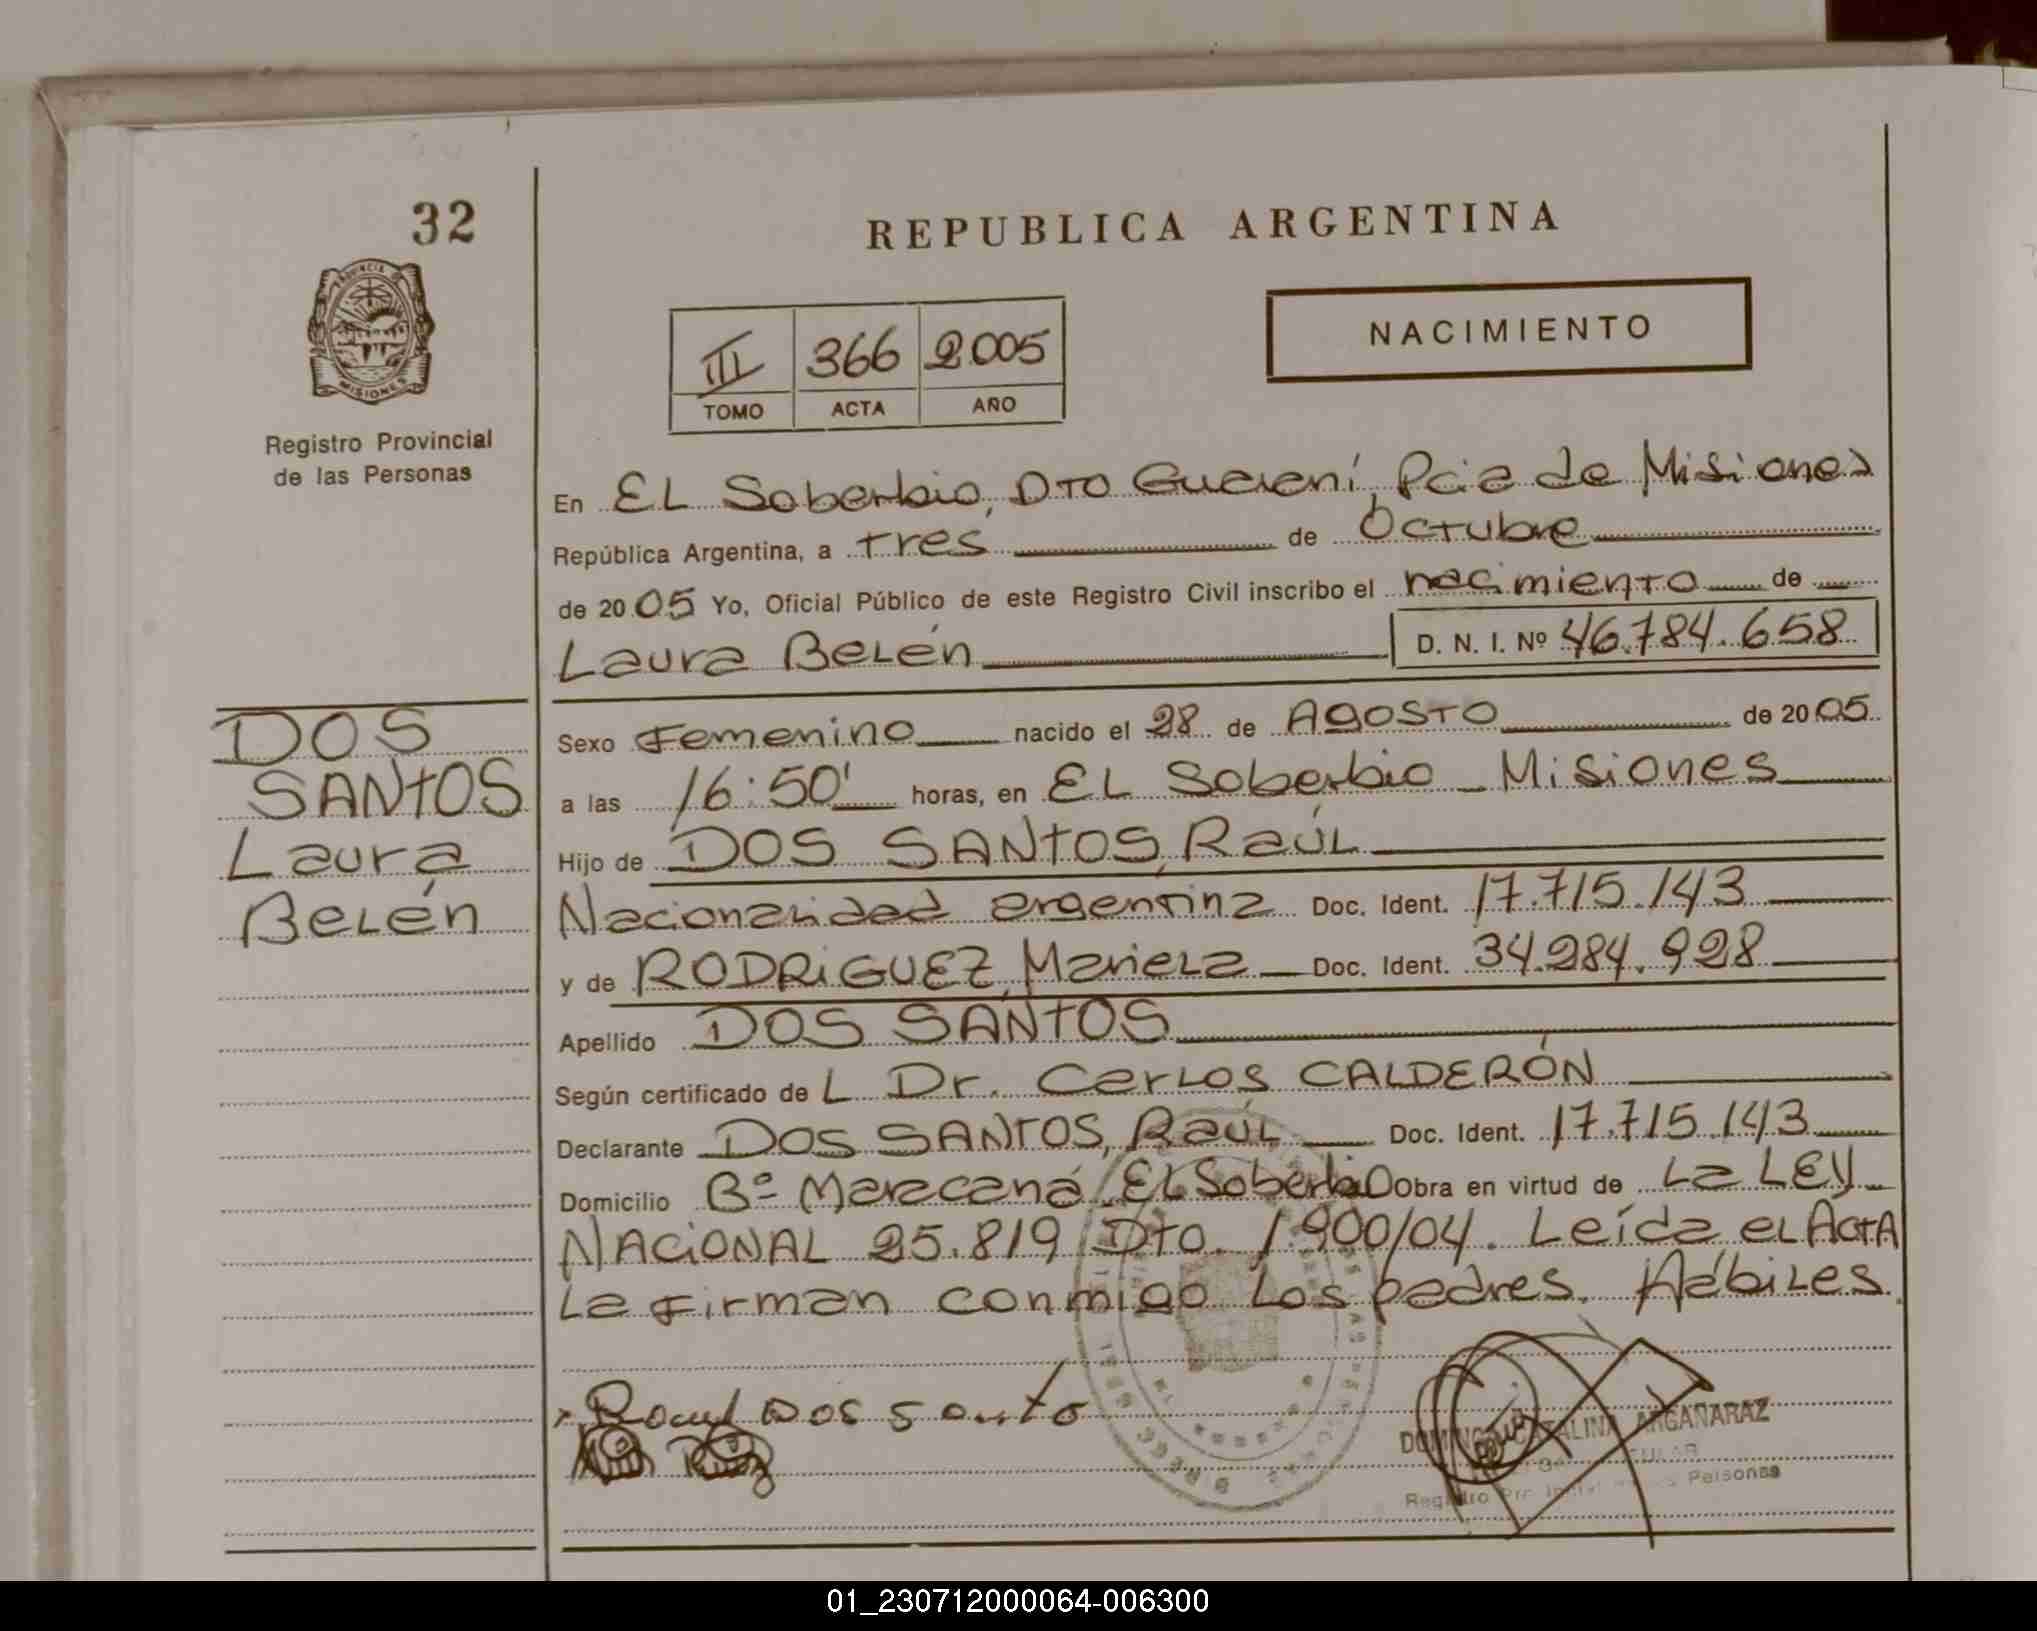 32
REPUBLICA ARGENTINA
NACIMIENTO
III 366 2005
TOMO ACTA AÑO
PROVINCIA DE
MISIONES
Registro Provincial
de las Personas
En EL Soberbio, DTO Guaraní, Pcia de Misiones
República Argentina, a tres de Octubre
de 2005 Yo, Oficial Público de este Registro Civil inscribo el nacimiento de
Laura Belén D. N. I. Nº 46.784.658
DOS
SANTOS
Laura
Belén
Sexo Femenino nacido el 28 de AGOSTO de 2005
a las 16:50' horas, en EL Soberbio - Misiones
Hijo de DOS SANTOS, Raúl
Nacionalidad argentina Doc. Ident. 17.715.143
y de RODRIGUEZ, Mariela Doc. Ident. 34.284.928
Apellido DOS SANTOS
Según certificado de L Dr. Carlos CALDERÓN
Declarante DOS SANTOS, Raúl Doc. Ident. 17.715.143
Domicilio Bº Maracaná, El Soberbio Obra en virtud de La LEY
NACIONAL 25.819 Dto. 1.900/04. Leída el ACTA
La firman conmigo Los padres. Hábiles.
Raul Dos santo
ARGAÑARAZ
Personas
01_230712000064-006300